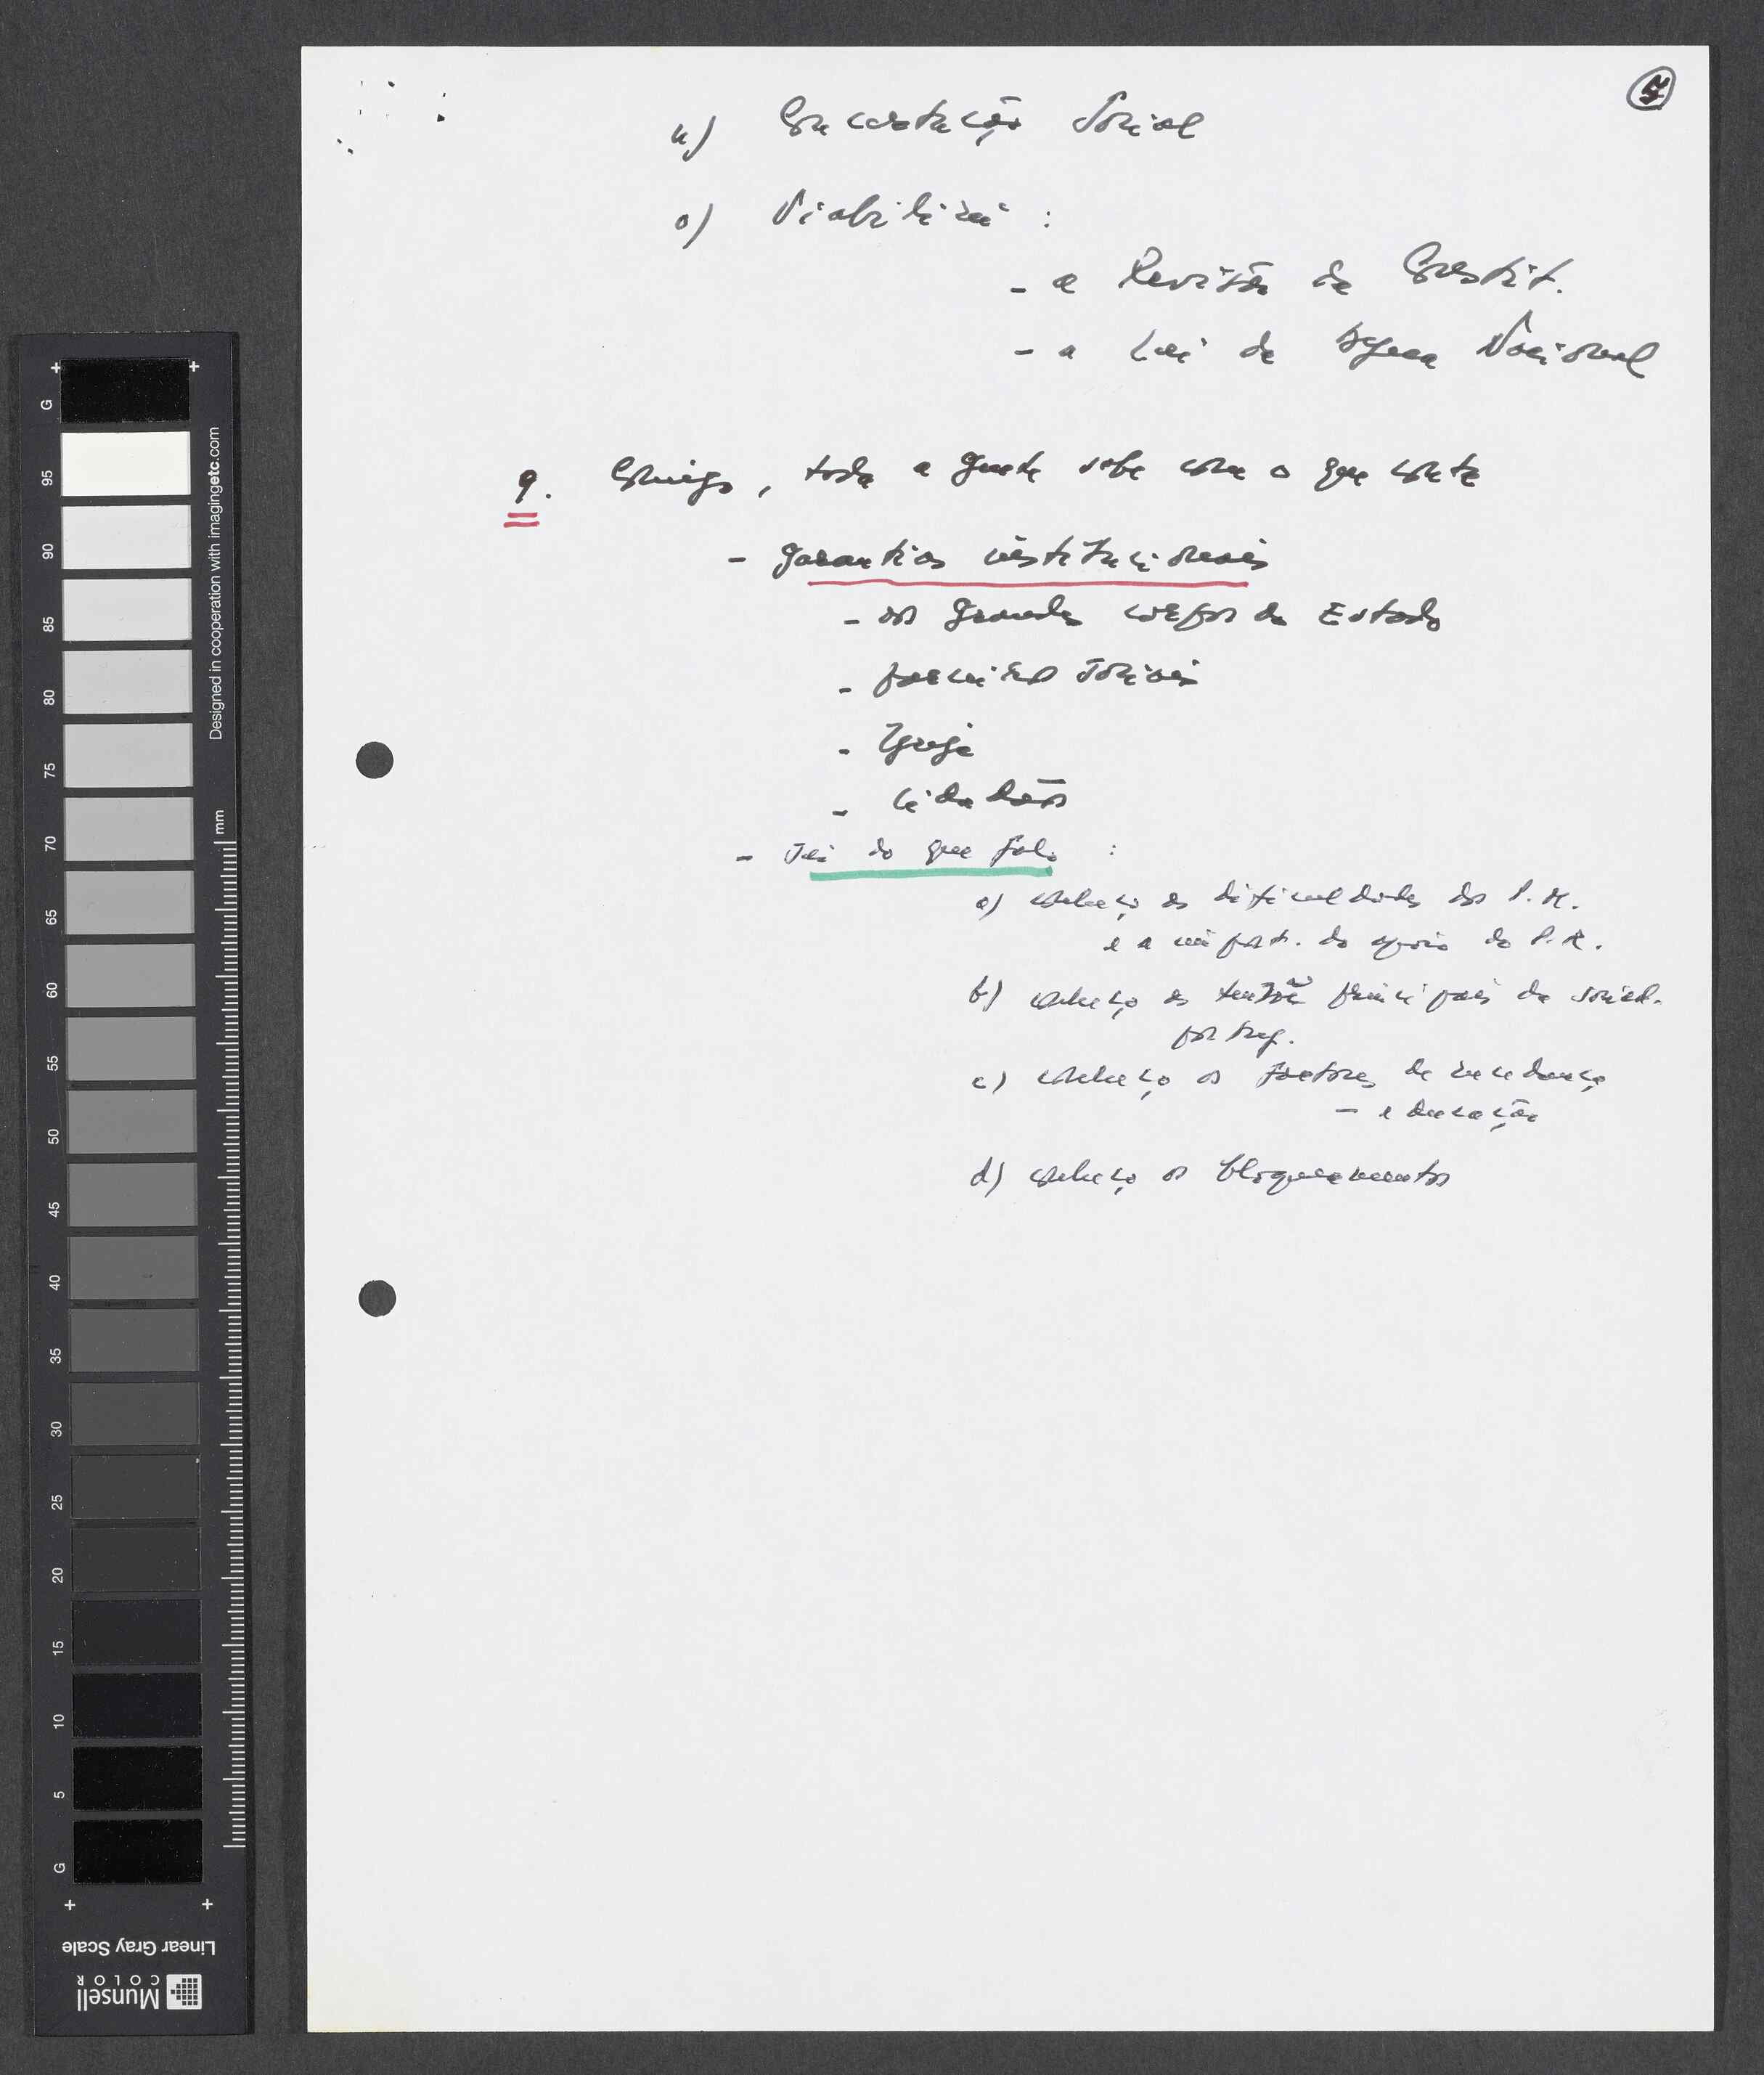 5
n) Concertação Social
o) Viabilizei :
- a Revisão da Constit.
- a Lei de Defesa Nacional
9. Comigo, toda a gente sabe com o que conta
- garantias institucionais
- os grandes corpos do Estado
- parceiros sociais
- Igreja
- cidadãos
- Sei do que falo :
a) conheço as dificuldades dos P.M.
e a import. do apoio do P.R.
b) conheço as tensões principais da socied.
portug.
c) conheço os factores de mudança
- educação
d) conheço os bloqueamentos
G
95
90
85
80
75
70
65
60
55
50
45
40
35
30
25
20
15
10
5
G
mm
Designed in cooperation with imagingetc.com
Linear Gray Scale
Munsell
COLOR